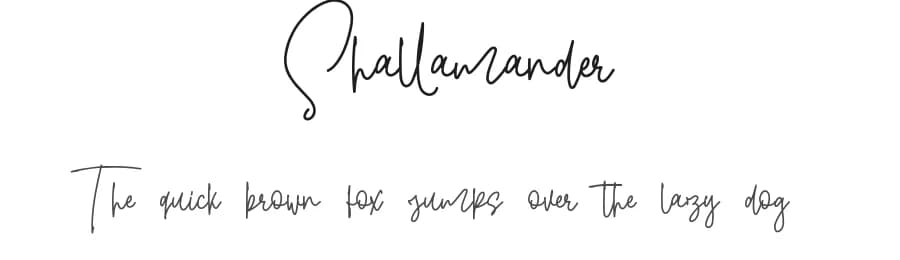 Shallamander
The quick brown fox jumps over the lazy dog